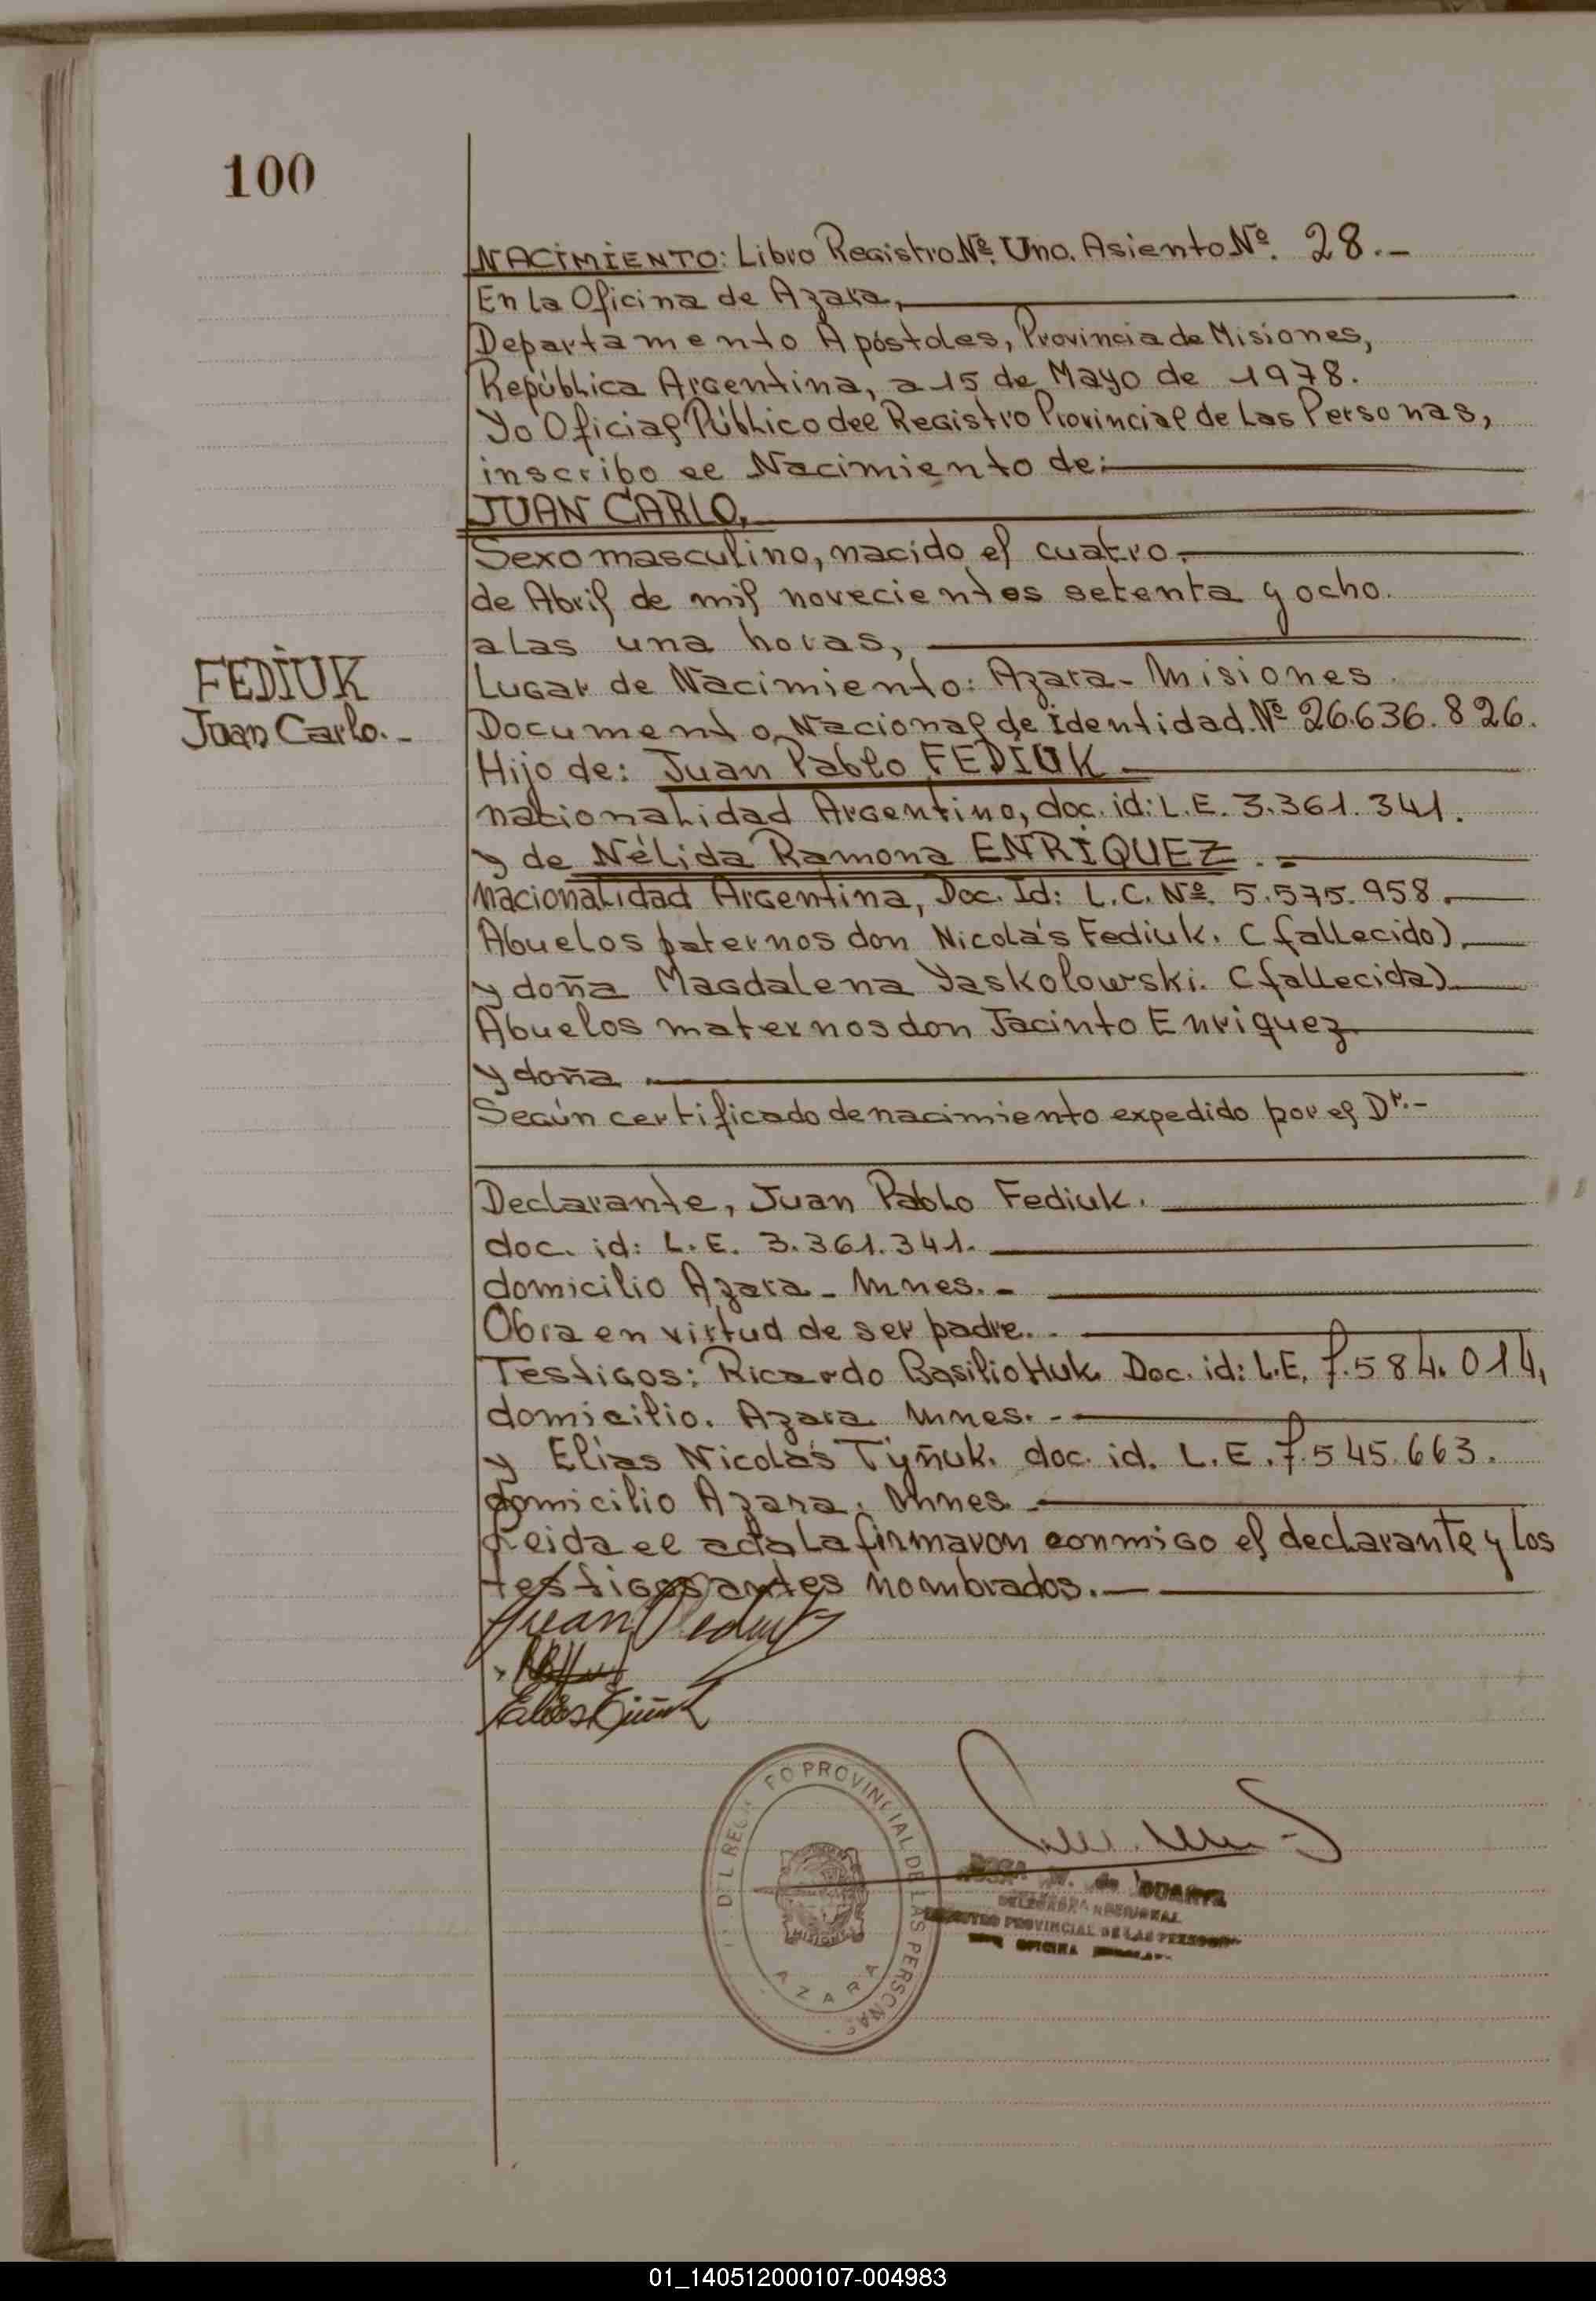 100
NACIMIENTO: Libro Registro Nº. Uno. Asiento Nº. 28.-
En la Oficina de Azara,
Departamento Apóstoles, Provincia de Misiones,
República Argentina, a 15 de Mayo de 1978.
Yo Oficial Público del Registro Provincial de las Personas,
inscribo el Nacimiento de:
JUAN CARLO.
Sexo masculino, nacido el cuatro.
de Abril de mil novecientos setenta y ocho.
a las una horas,
FEDIUK
Juan Carlo.-
Lugar de Nacimiento: Azara - Misiones.
Documento Nacional de Identidad. Nº 26.636.826.
Hijo de: Juan Pablo FEDIUK
nacionalidad Argentino, doc. id: L.E. 3.361.341.
y de Nélida Ramona ENRIQUEZ.-
nacionalidad Argentina, Doc. Id: L.C. Nº. 5.575.958.
Abuelos paternos don Nicolás Fediuk. (fallecido).
y doña Magdalena Yaskolowski. (fallecida).
Abuelos maternos don Jacinto Enriquez.
y doña
Según certificado de nacimiento expedido por el Dr.-
Declarante, Juan Pablo Fediuk.
doc. id: L.E. 3.361.341.
domicilio Azara - Mnes.-
Obra en virtud de ser padre.
Testigos: Ricardo Basilio Huk. Doc. id: L.E. 7.584.014,
domicilio. Azara. Mnes.-
y Elías Nicolás Tiyñuk. doc. id. L.E. 7.545.663.
domicilio Azara. Mnes.
Leida el acta la firmaron conmigo el declarante y los
testigos antes nombrados.
Juan
Elias
PROVINCIAL DE LAS PERSONAS
MISIONES
AZARA
de DUARTE
PROVINCIAL DE LAS PERSONAS
OFICINA
01_140512000107-004983